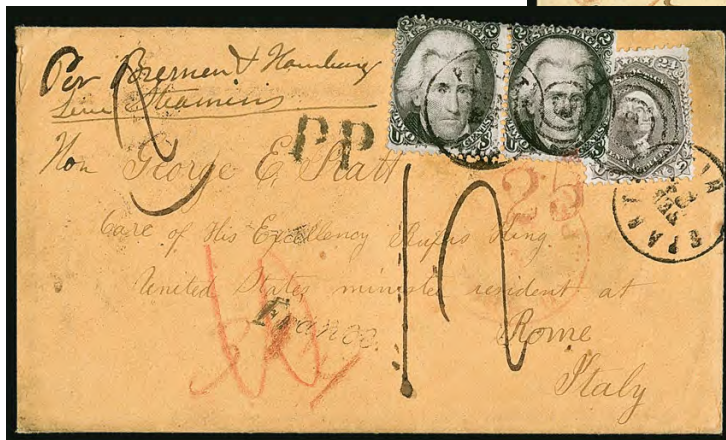 Per Bremen & Hamburg
Line Steamers
P.P.
Hon George E. Pratt
25
Care of His Excellency Rufus King
United States minister resident at
Franco.
Rome
Italy
12
SPARTA